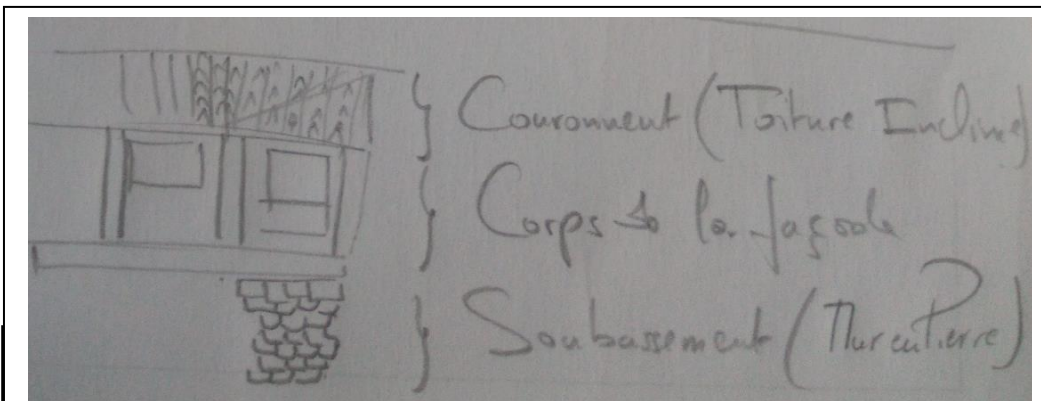 Couronnment (Toiture Incliné)
Corps de la façade
Soubassement (Mur en Pierre)